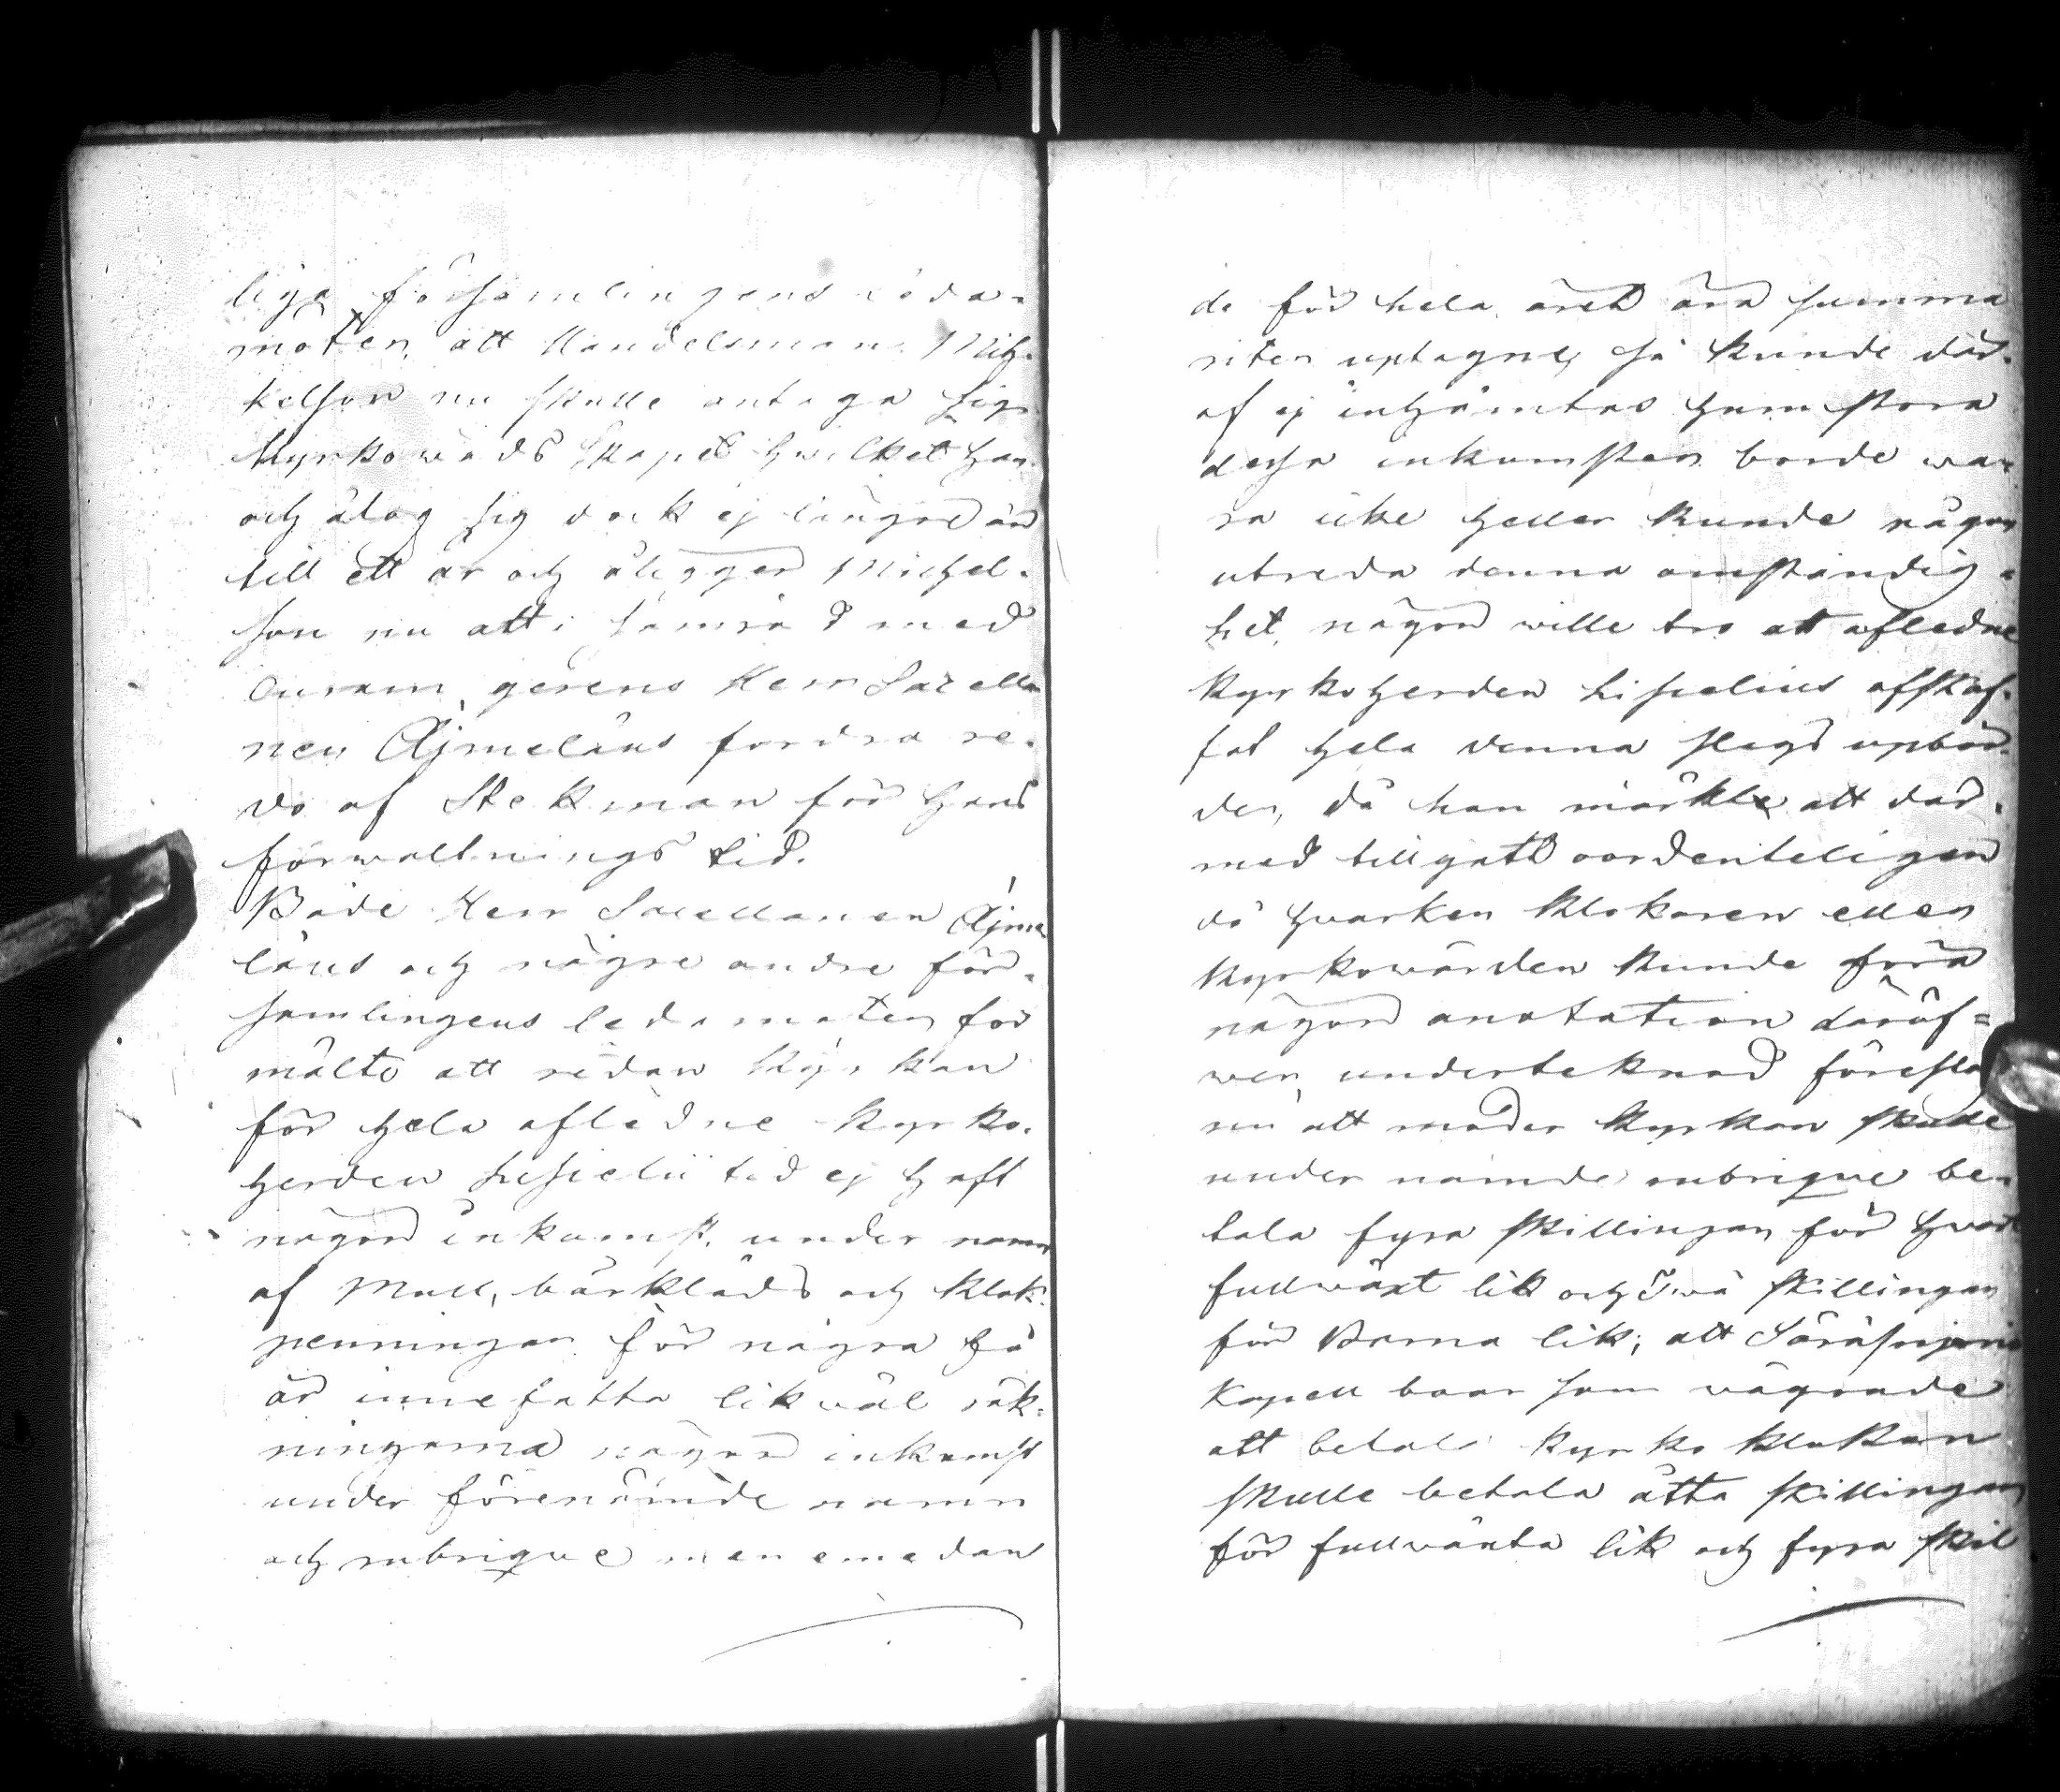 liga församlingens leda-
möter, att Handelsman Mich-
kelson nu skulle antaga sig
Kyrkowärdskapet hwilket han
och åtog sig dock ej längre än
till ett år och ålägger Michel-
son nu att i samråd med
Curam gerens Herr Sacella
nen Ajmelæus fordra re-
do af Stekman för hans
förwaltnings tid.
Både Herr Sacellanen Ajme
læus och någre andre för-
samlingens ledamöter för
mälte att sedan Kyrkan
för hela aflednе Kyrko-
herden Lisielii tid ej haft
någon inkomst under namn
af Mull, bårkläds och Klok-
penningar för några få
år innefatta likwäl räk-
ningarna någon inkomst
under förenämde namn
och rubrique men emedan
de för hela året äro summa
riter uptagne, så kunde där-
af ej inhämtas huru stora
dessa inkomster borde wa-
ra icke heller kunde någon
utreda denna omständig-
het, någon wille tro att aflednе
Kyrkoherden Lisielius afskaf-
fat hela denna slags upbör-
der, då han märkte att där-
med tillgått oordenteligen
då hwarken Klokaren eller
Kyrkowärden kunde föra
någon anotation däröf-
wer, underteknad föreslog
nu att moder Kyrkan skulle
under nämde rubrique be-
tala fyra skillingar för hwart
fullwäxt lik och Twå skillingar
för Barna lik; att Säräsniemi
Kapell boar som wägrade
att betala Kyrko Klokan
skulle betala åtta skillingar
för fullwäxta lik och fyra skil